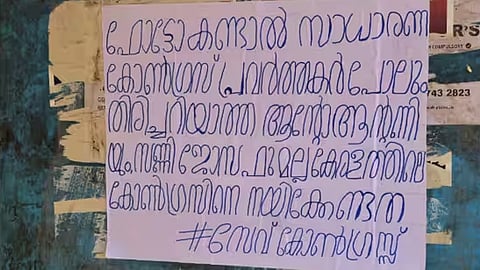 ഫോട്ടോ കണ്ടാൽ സാധാരണ
കോൺഗ്രസ് പ്രവർത്തകർ പോലും
തിരിച്ചറിയാത്ത ആന്റോആന്റണി
യും സണ്ണി ജോസഫുമല്ല കേരളത്തിലെ
കോൺഗ്രസിനെ നയിക്കേണ്ടത
#സേവ് കോൺഗ്രസ്സ്
R'S
COMPULSORY
743 2823